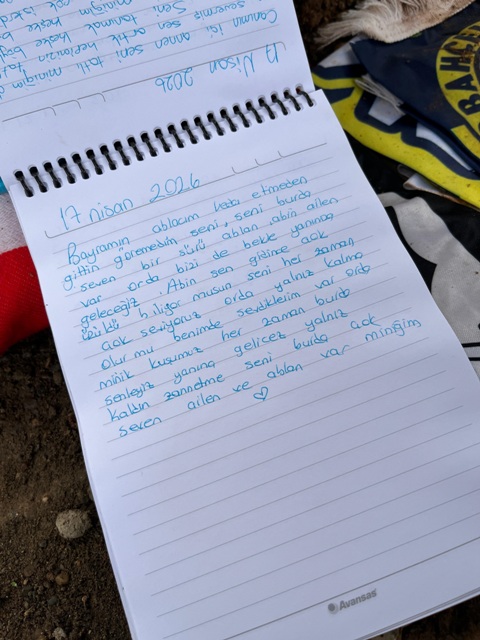 Canımın içi annen seni
17 Nisan 2026
17 nisan 2026
Bayramın ablacım veda etmeden
gittin göremedim seni, seni burda
seven bir sürü ablan abin ailen
var orda bizi de bekle yanına
geleceğiz. Abin sen gidince çok
üzüldü biliyor musun seni her zaman
çok seviyoruz orda yalnız kalma
olur mu benimde sevdiklerim var orda
minik kuşumuz her zaman burda
senleyiz yanına gelicez yalnız
kaldın zannetme seni burda çok
seven ailen ve ablan var miniğim
BAHÇE
Avansas